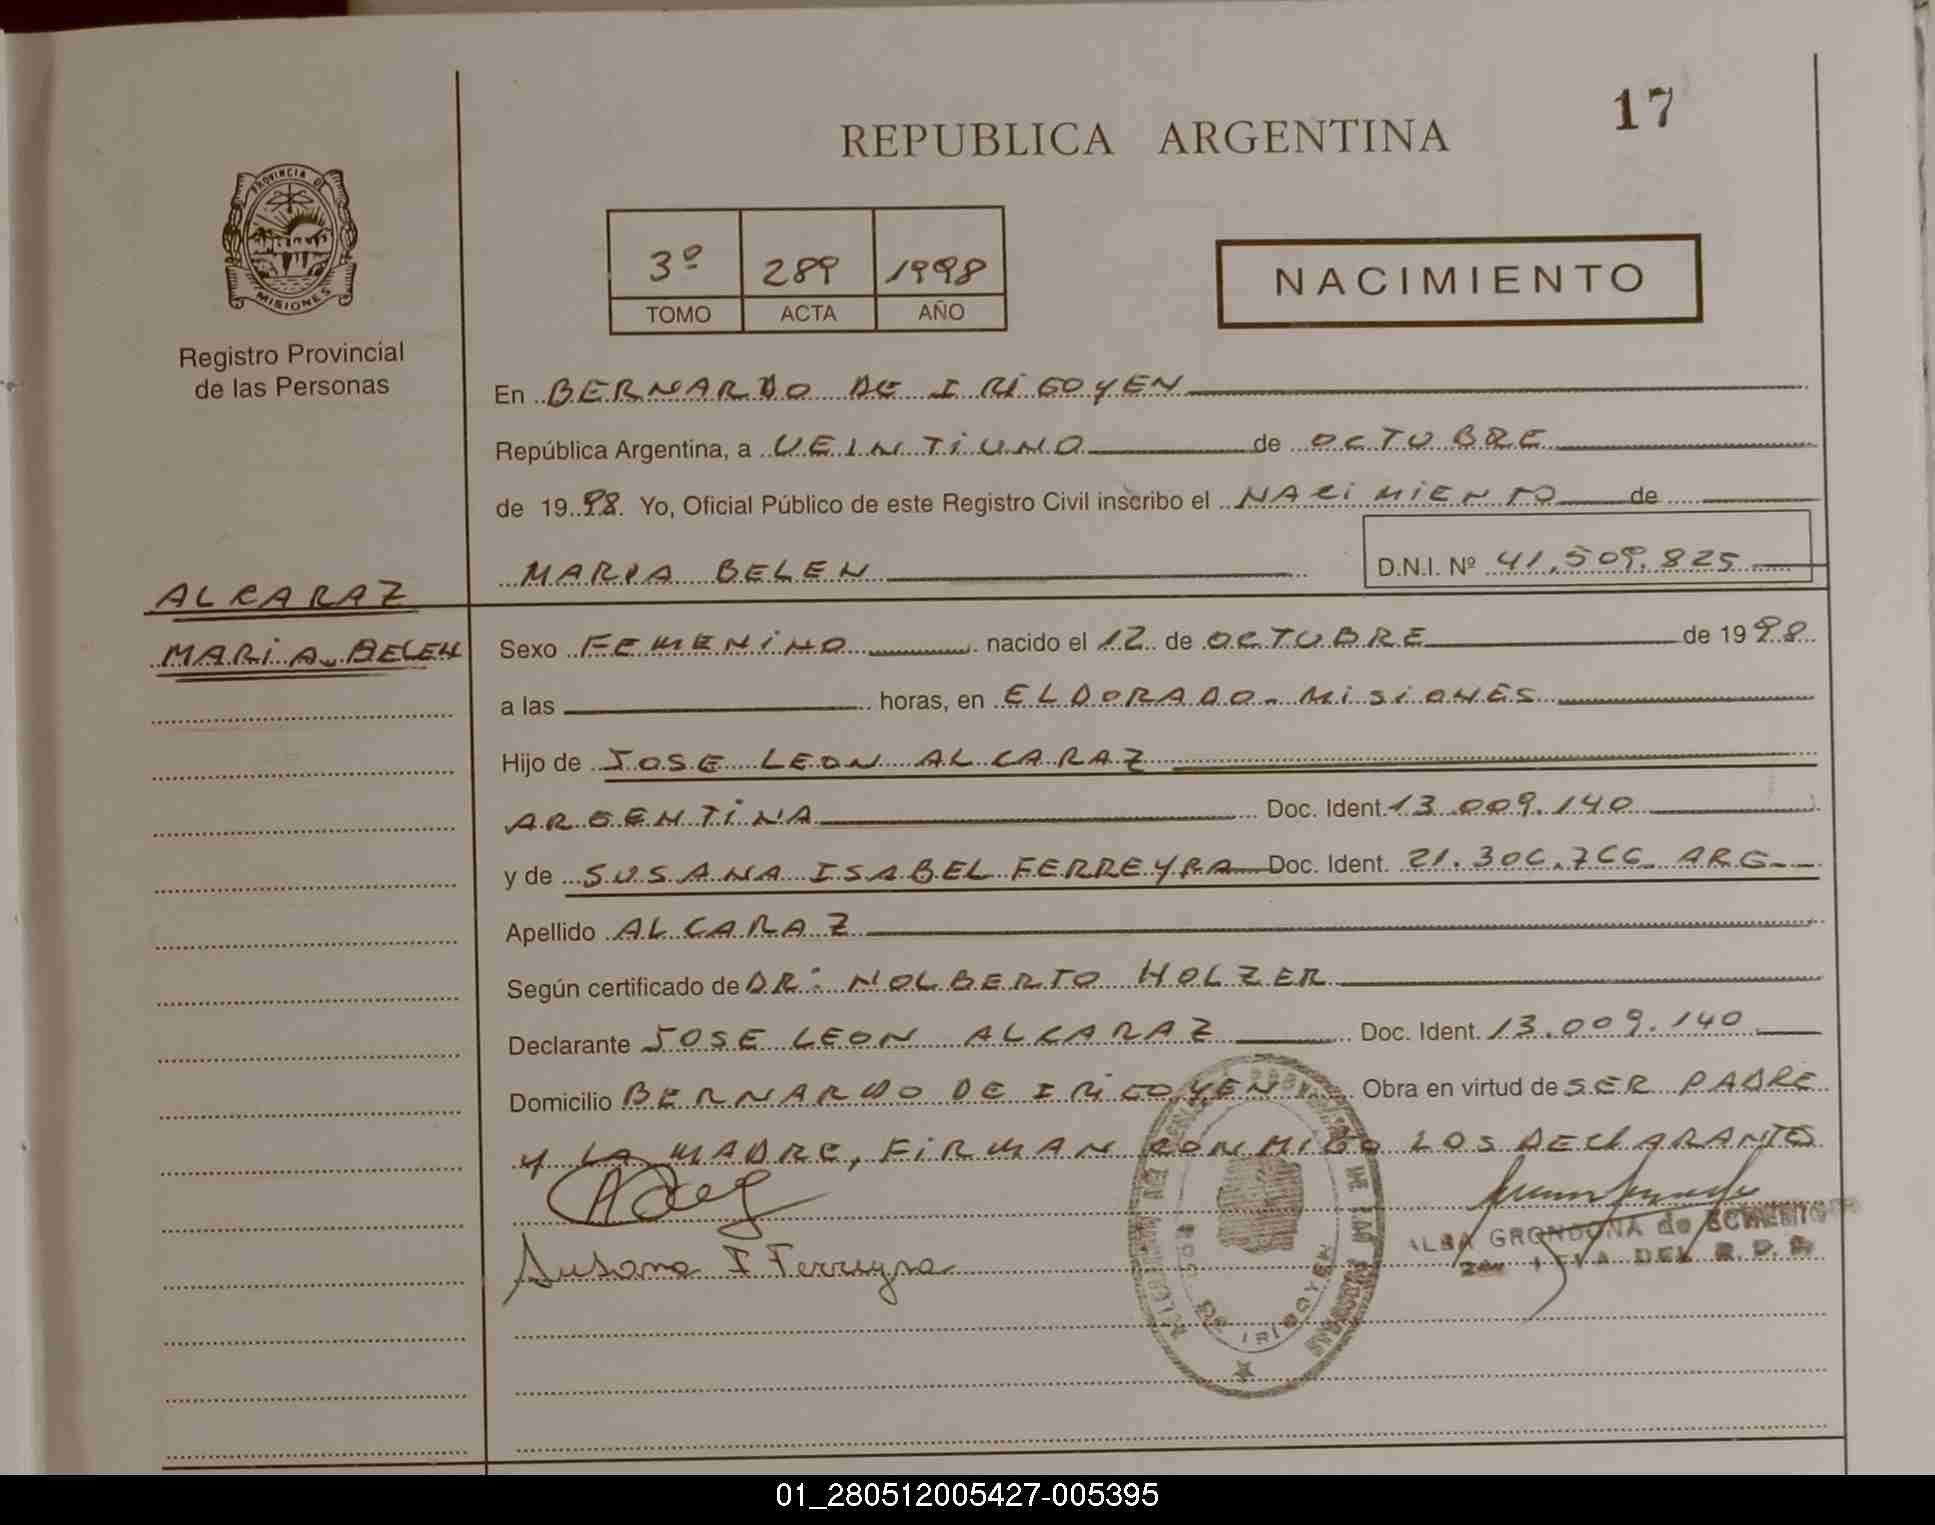 17
REPUBLICA ARGENTINA
PROVINCIA DE
MISIONES
Registro Provincial
de las Personas
3º 289 1998
TOMO ACTA AÑO
NACIMIENTO
En BERNARDO DE IRIGOYEN
República Argentina, a VEINTIUNO de OCTUBRE
de 1998. Yo, Oficial Público de este Registro Civil inscribo el NACIMIENTO de
MARIA BELEN D.N.I. Nº 41.509.825
ALCARAZ
MARIA BELEN
Sexo FEMENINO nacido el 12 de OCTUBRE de 1998
a las horas, en ELDORADO - MISIONES
Hijo de JOSE LEON ALCARAZ
ARGENTINA Doc. Ident. 13.009.140
y de SUSANA ISABEL FERREYRA Doc. Ident. 21.306.766 ARG.
Apellido ALCARAZ
Según certificado de DR: NOLBERTO HOLZER
Declarante JOSE LEON ALCARAZ Doc. Ident. 13.009.140
Domicilio BERNARDO DE IRIGOYEN Obra en virtud de SER PADRE
Y LA MADRE, FIRMAN CONMIGO LOS DECLARANTES
Susana I Ferreyra
ALBA GRONDONA de
DEL R.D.P.
DE IRIGOYEN
01_280512005427-005395